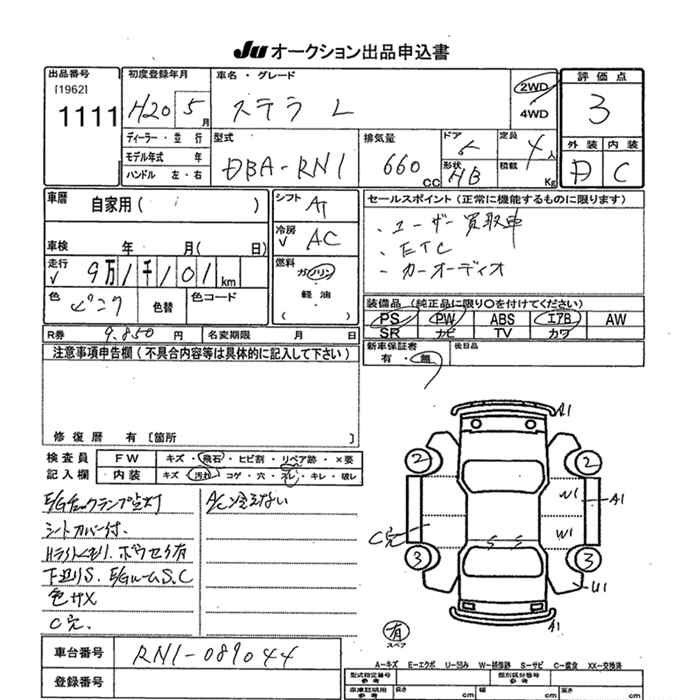 Ju オークション出品申込書
出品番号 初度登録年月 車名・グレード 2WD 評価点
[1962]
1111 H20 5月 ステラ L 4WD 3
ディーラー・並行 型式 排気量 ドア 定員 外装 内装
モデル年式 年 DBA-RN1 660 5 4人 D C
ハンドル 左・右 CC 形状 HB 積載 Kg
車歴 自家用( ) シフト AT セールスポイント(正常に機能するものに限ります)
・ユーザー買取車
車検 年 月( 日) 冷房 AC ・ETC
・カーオーディオ
走行 9万1千101km 燃料 ガソリン
軽油
( )
色 ピンク 色替 色コード 装備品(純正品に限り○を付けてください)
PS PW ABS エアB AW
R券 9,850円 名変期限 月 日 SR ナビ TV カワ
注意事項申告欄(不具合内容等は具体的に記入して下さい) 新車保証書 後日品
有・無
修復歴 有 [箇所 ]
検査員 FW キズ・飛石・ヒビ割・リペア跡・×要
記入欄 内装 キズ・汚れ・コゲ・穴・スレ・キレ・破レ
E/Gチェックランプ点灯 AC冷えない
シートカバー付.
Hライトくもり.ボウセイ有
下廻りS.E/GルームS.C
色サメ
C穴.
A1
2 2
W1 A1
C穴 W1
3 3
U1
A1
有
スペア
車台番号 RN1-089044
登録番号
A-キズ E-エクボ U-凹み W-補修跡 S-サビ C-腐食 XX-交換済
型式指定番号 参考 類別区分番号 参考
車庫証明用 参考 長さ cm 幅 cm 高さ cm